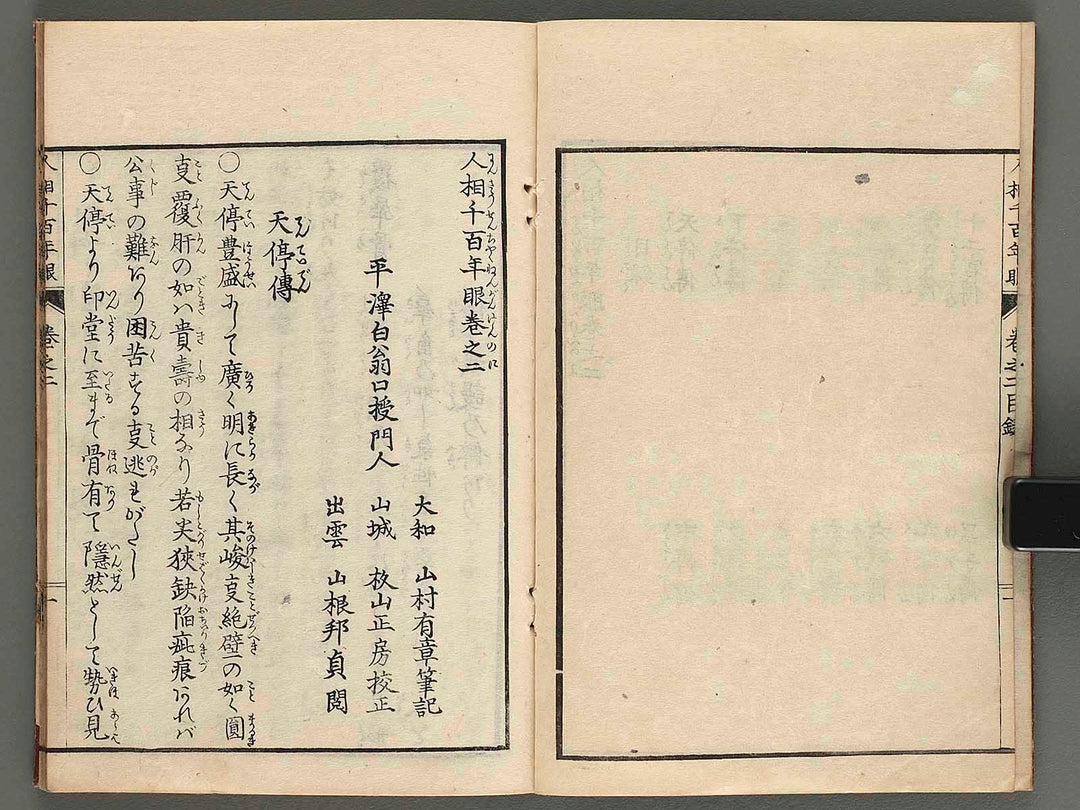 人相千百年眼
卷之二目録
人相千百年眼卷之二
平澤白翁口授門人
大和 山村有章筆記
山城 杦山正房校正
出雲 山根邦貞閲
天停傳
○天停豊盛にして廣く明に長く其峻叓絶壁の如く圓
叓覆肝の如ハ貴壽の相なり若尖狹缺陥疵痕あれバ
公事の難あり困苦する叓逃れがたし
○天停より印堂に至まで骨有て隱然として勢ひ見
人相千百年眼
卷之二
一